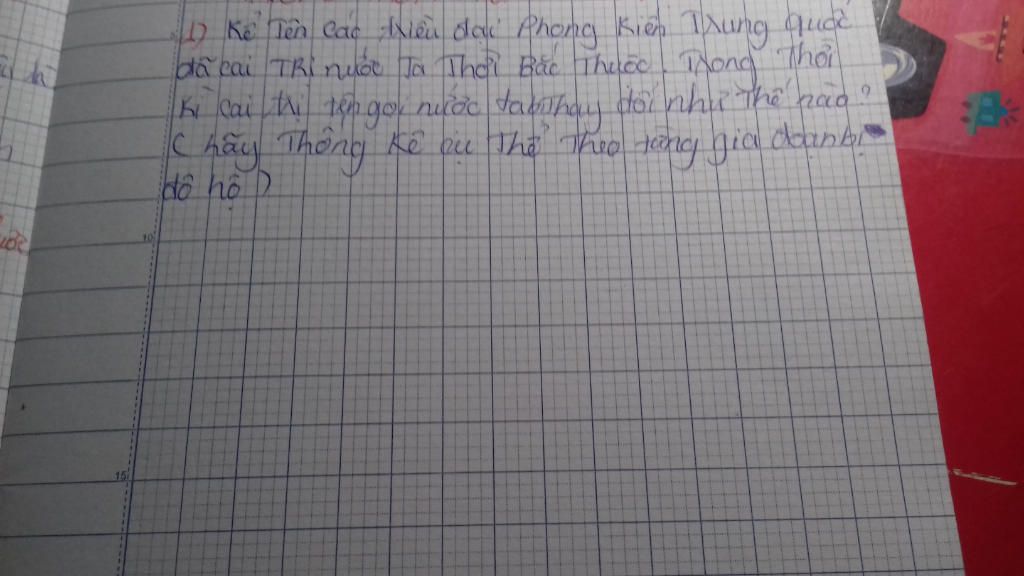 1) Kể Tên Các triều đại Phong Kiến Trung Quốc
đã cai Trị nước Ta Thời Bắc Thuộc. Trong Thời
kì cai trị tên gọi nước ta thay đổi như Thế nào?
( hãy Thống Kê cụ Thể Theo từng gia đoạn bị
đô hộ )
10
15